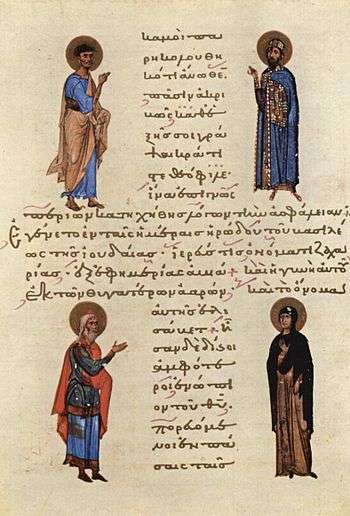 κἀμοὶ πα
ρηκολουθη
κότι ἄνωθε
πᾶσιν ἀκρι
βῶς καθε
ξῆς σοι γρά
ψαι κράτι
στε θεόφιλε
ἵνα ἐπιγνῷς
περὶ ὧν κατηχήθης λόγων τὴν ἀσφάλειαν
Ἐγένετο ἐν ταῖς ἡμέραις ἡρώδου τοῦ βασιλέ
ως τῆς ἰουδαίας· ἱερεύς τις ὀνόματι ζαχα
ρίας· ἐξ ἐφημερίας ἀβιά· καὶ ἡ γυνὴ αὐτοῦ
ἐκ τῶν θυγατέρων ἀαρών· καὶ τὸ ὄνομα
αὐτῆς ἐλι
σάβετ· ἦ
σαν δὲ δίκαιοι
ἀμφότε
ροι ἐνώπι
ον τοῦ θυ
πορευόμε
νοι ἐν πά
σαις ταῖς